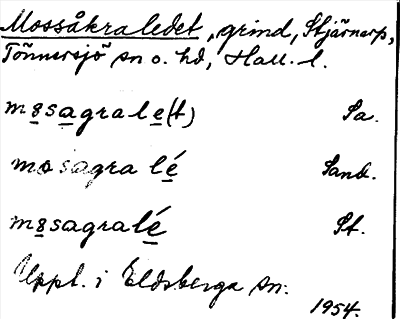 Mossåkraledet, grind, Stjärnarp,
Tönnersjö sn o. hd, Hall. l.
møsagrale(t) Sa.
mosagra lé Sand.
møsagralé St.
Uppt. i Eldsberga sn.
1954.